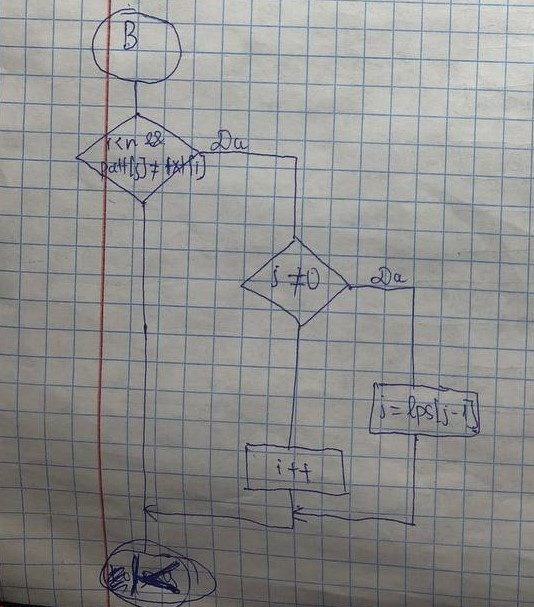 B
i<n &&
patt[j] ≠ txt[i]
Da
j ≠ 0
Da
j = lps[j-1]
i++
K